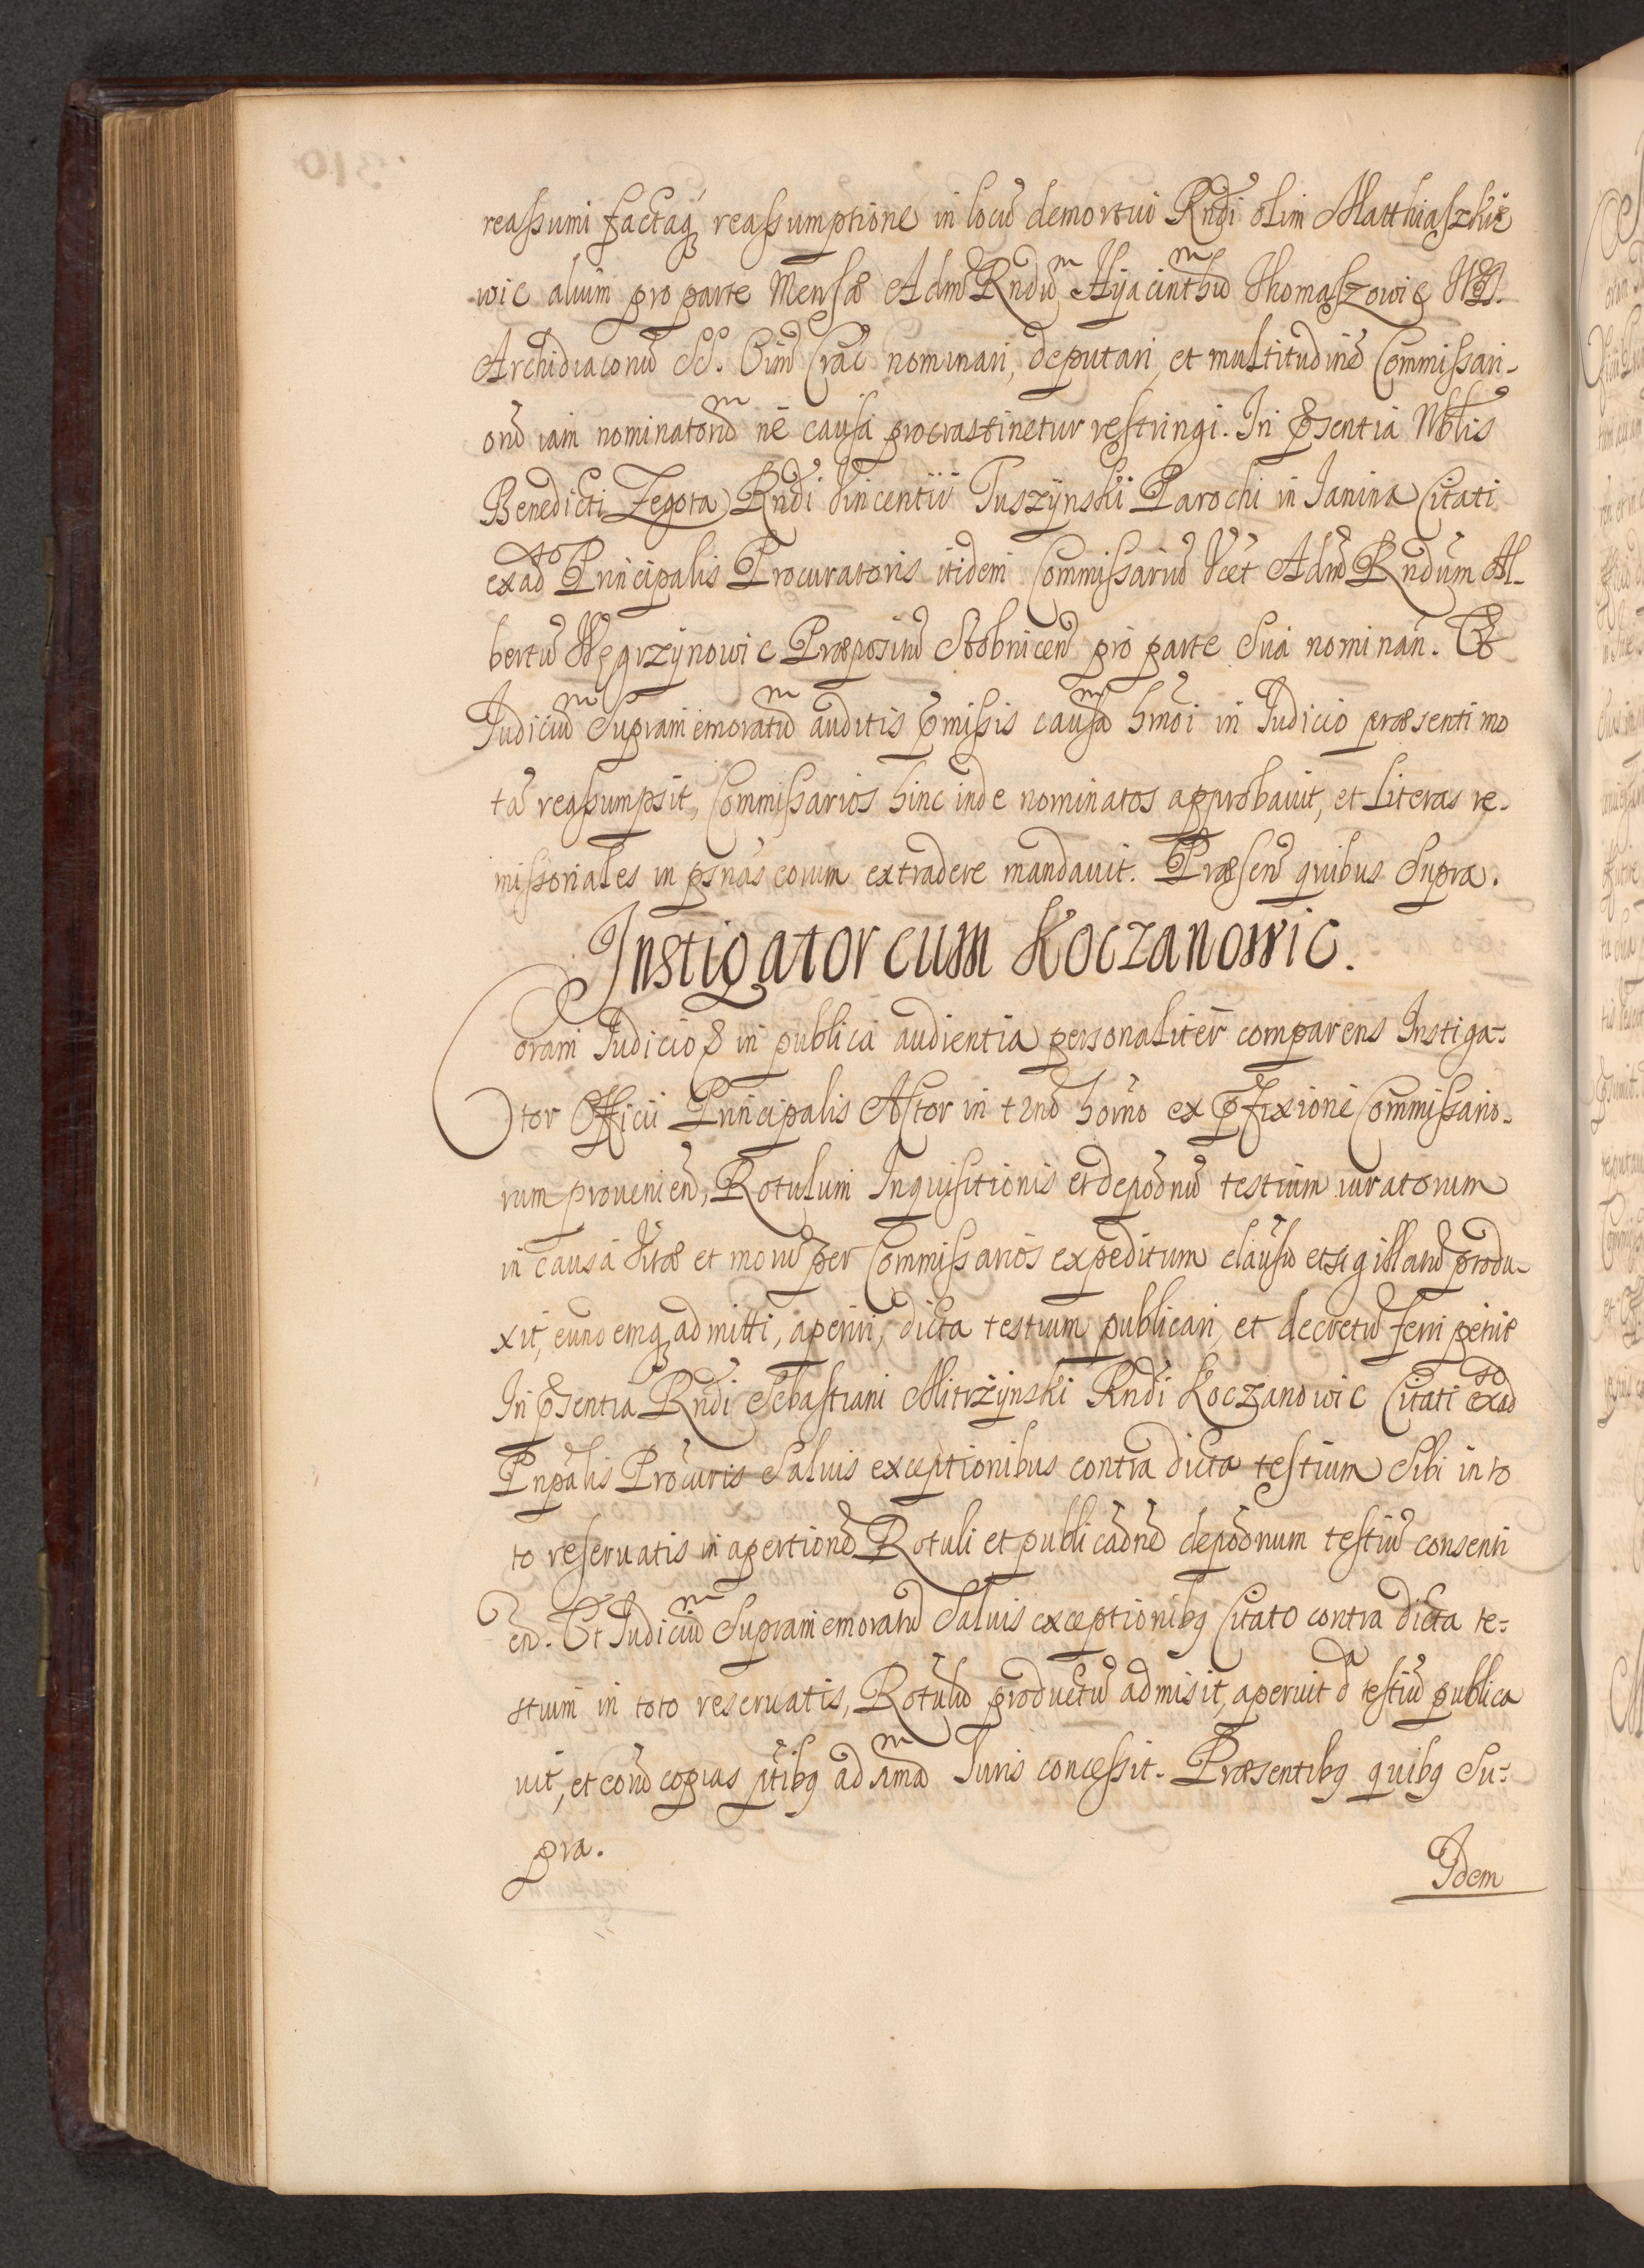 reassumi factaq́ reassumptione in locū demortui Rndi olim Matthiaszkie
wic alium pro parte Mensæ Adm Rndū Hyacinthū Thomaszowic
Archidiaconū Off. Crac nominari, deputari, et multitudinē Commissari-
orū iam nominatorū ne causa procrastinetur restringi. In Pſentia Nblis
Benedicti Zegota Rndi Vincentii Tuszÿnski Parochi in Janina Citati
ex ad Principalis Procuratoris itidem Commissariū Adm Rndum Al-
bertū Węgrzÿnowic Præpositū Stobnicen pro parte Sua nominan. Et
Judiciū Supramemoratū auditis pmissis causā hmoi in Judicio præsenti mo
tā reassumpsit, Commissarios hinc inde nominatos approbauit, et Literas re-
missoriales in psnas eorum extradere mandauit. Præsen quibus Supra.
Instigator cum Koczanowic.
Coram Judicio in publica audientia personaliter comparens Instiga-
tor Officii Principalis Actor in tno horno ex pfixione Commissario-
rum prouenien, Rotulum Inquisitionis et depōnū testium iuratorum
in causa Vitæ et morū per Commissarios expeditum clausū et sigillatū produ-
xit, eundemq admitti, aperiri, dicta testium publicari, et decretū ferri petiit
In Pſentia Rndi Sebastiani Mitrzÿnski Rndi Koczanowic Citati ex ad
Prīpalis Procuris Saluis exceptionibus contra dicta testium Sibi in to
to reseruatis in apertionē Rotuli et publicaōnē depōnum testiū consenti
en. Et Judiciū Supramemoratū Saluis exceptionibq Citato contra dicta te-
stium in toto reseruatis, Rotulū productū admisit, aperuit d testiū publica
uit, et eorū copias ptibq ad Juris concessit. Præsentibq quibq Su-
pra.
Idem